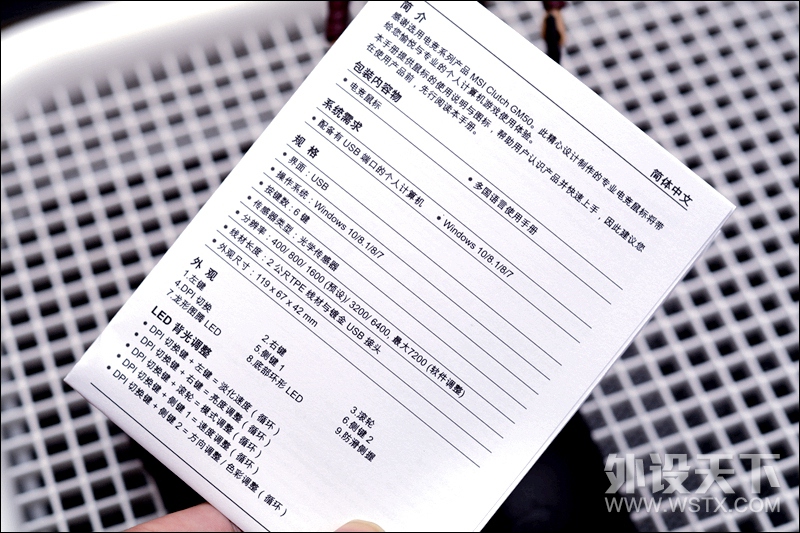 简体中文
简 介
感谢选用电竞系列产品 MSI Clutch GM50。此精心设计制作的专业电竞鼠标将带
给您愉悦与专业的个人计算机游戏使用体验。
本手册提供鼠标的使用说明与图标，帮助用户认识产品并快速上手，因此建议您
在使用产品前，先行阅读本手册。
包装内容物
• 电竞鼠标
• 多国语言使用手册
系统需求
• 配备有 USB 端口的个人计算机
• Windows 10/8.1/8/7
规 格
• 界面：USB
• 操作系统：Windows 10/8.1/8/7
• 按键数：6 键
• 传感器类型：光学传感器
• 分辨率：400/ 800/ 1600 (预设)/ 3200/ 6400, 最大7200 (软件调整)
• 线材长度：2 公尺TPE 线材与镀金 USB 接头
• 外观尺寸：119 x 67 x 42 mm
外 观
1.左键
2.右键
3.滚轮
4.DPI 切换
5.侧键 1
6.侧键 2
7.龙形图腾 LED
8.底部环形 LED
9.防滑侧握
LED 背光调整
• DPI 切换键 + 左键 = 淡化速度 ( 循环 )
• DPI 切换键 + 右键 = 亮度调整 ( 循环 )
• DPI 切换键 + 滚轮 = 模式调整 ( 循环 )
• DPI 切换键 + 侧键 1 = 速度调整 ( 循环 )
• DPI 切换键 + 侧键 2 = 方向调整 / 色彩调整 ( 循环 )
外设天下
WWW.WSTX.COM